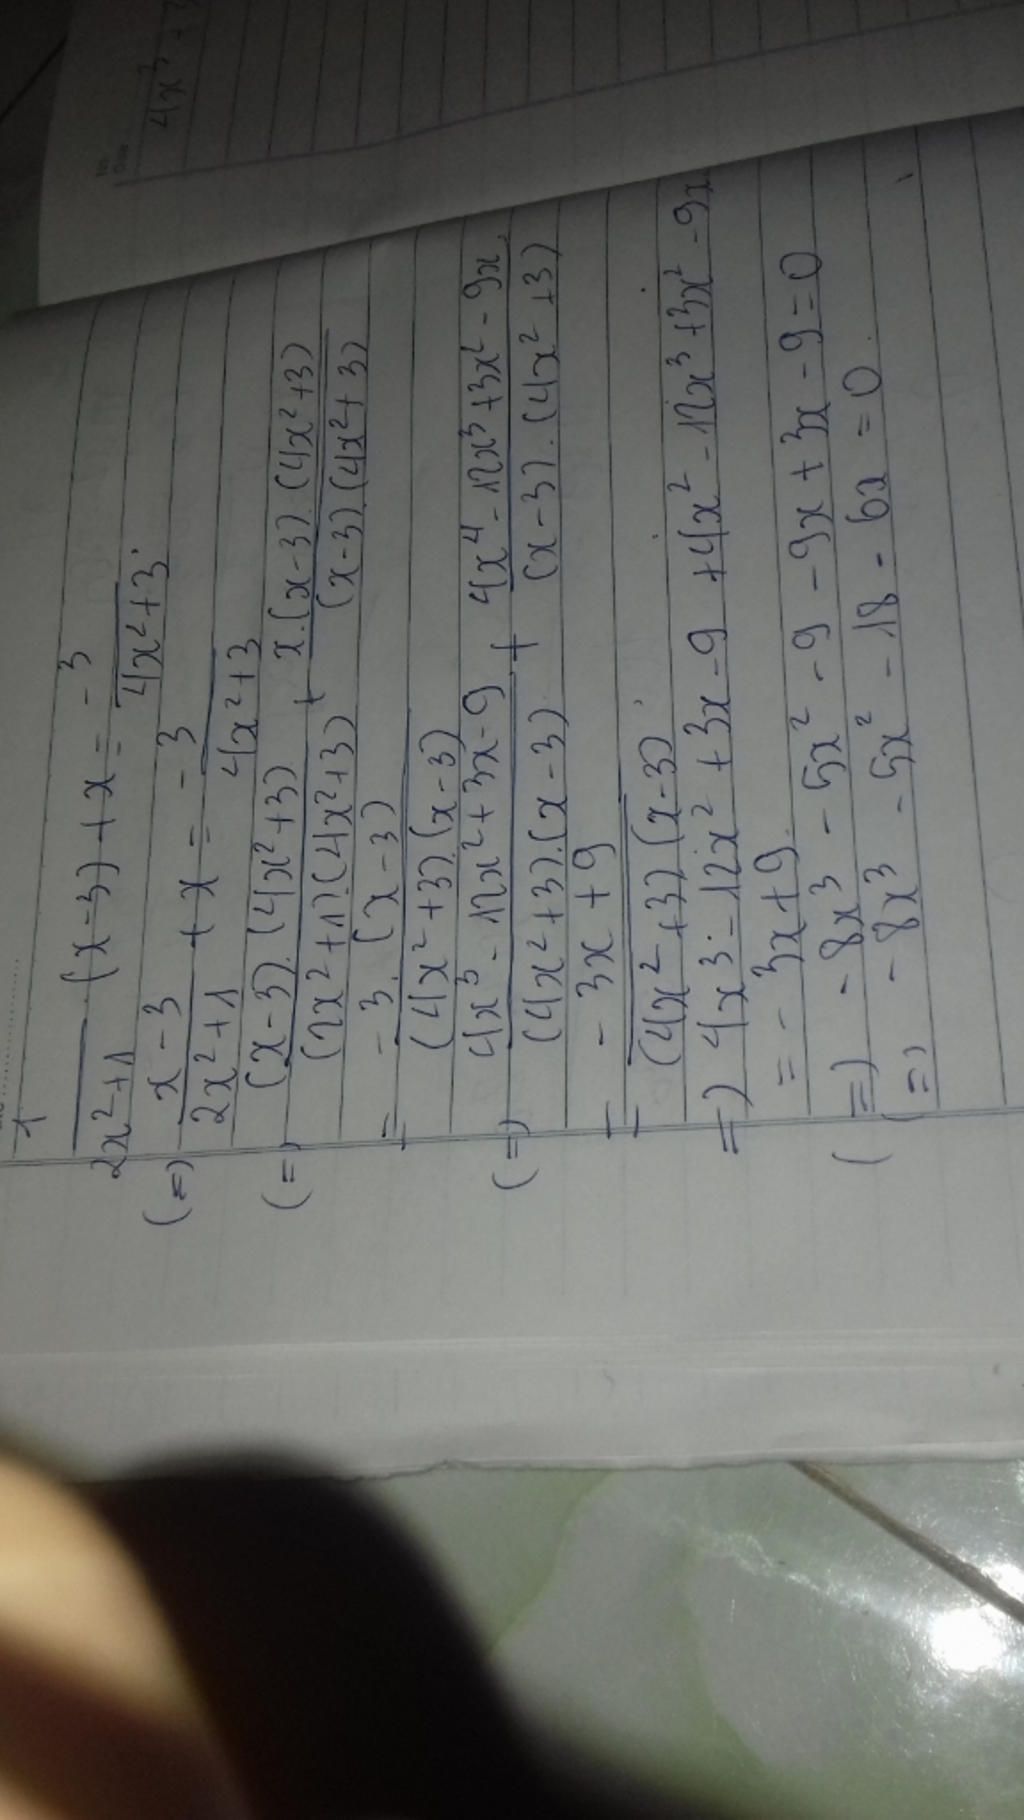 4x³ + 3
1
2x²+1 (x-3) + x = - 3
4x²+3.
(=) x-3 / 2x²+1 + x = - 3 / 4x²+3
(=) (x-3).(4x²+3) / (2x²+1).(4x²+3) + x.(x-3).(4x²+3) / (x-3).(4x²+3)
= -3.(x-3) / (4x²+3).(x-3)
(=) 4x³-12x²+3x-9 / (4x²+3).(x-3) + 4x⁴-12x³+3x²-9x / (x-3).(4x²+3)
= -3x+9 / (4x²+3)(x-3)
=) 4x³-12x²+3x-9+4x²-12x³+3x²-9x
= -3x+9
(=) -8x³-5x²-9-9x+3x-9=0
(=) -8x³-5x²-18-6x=0.